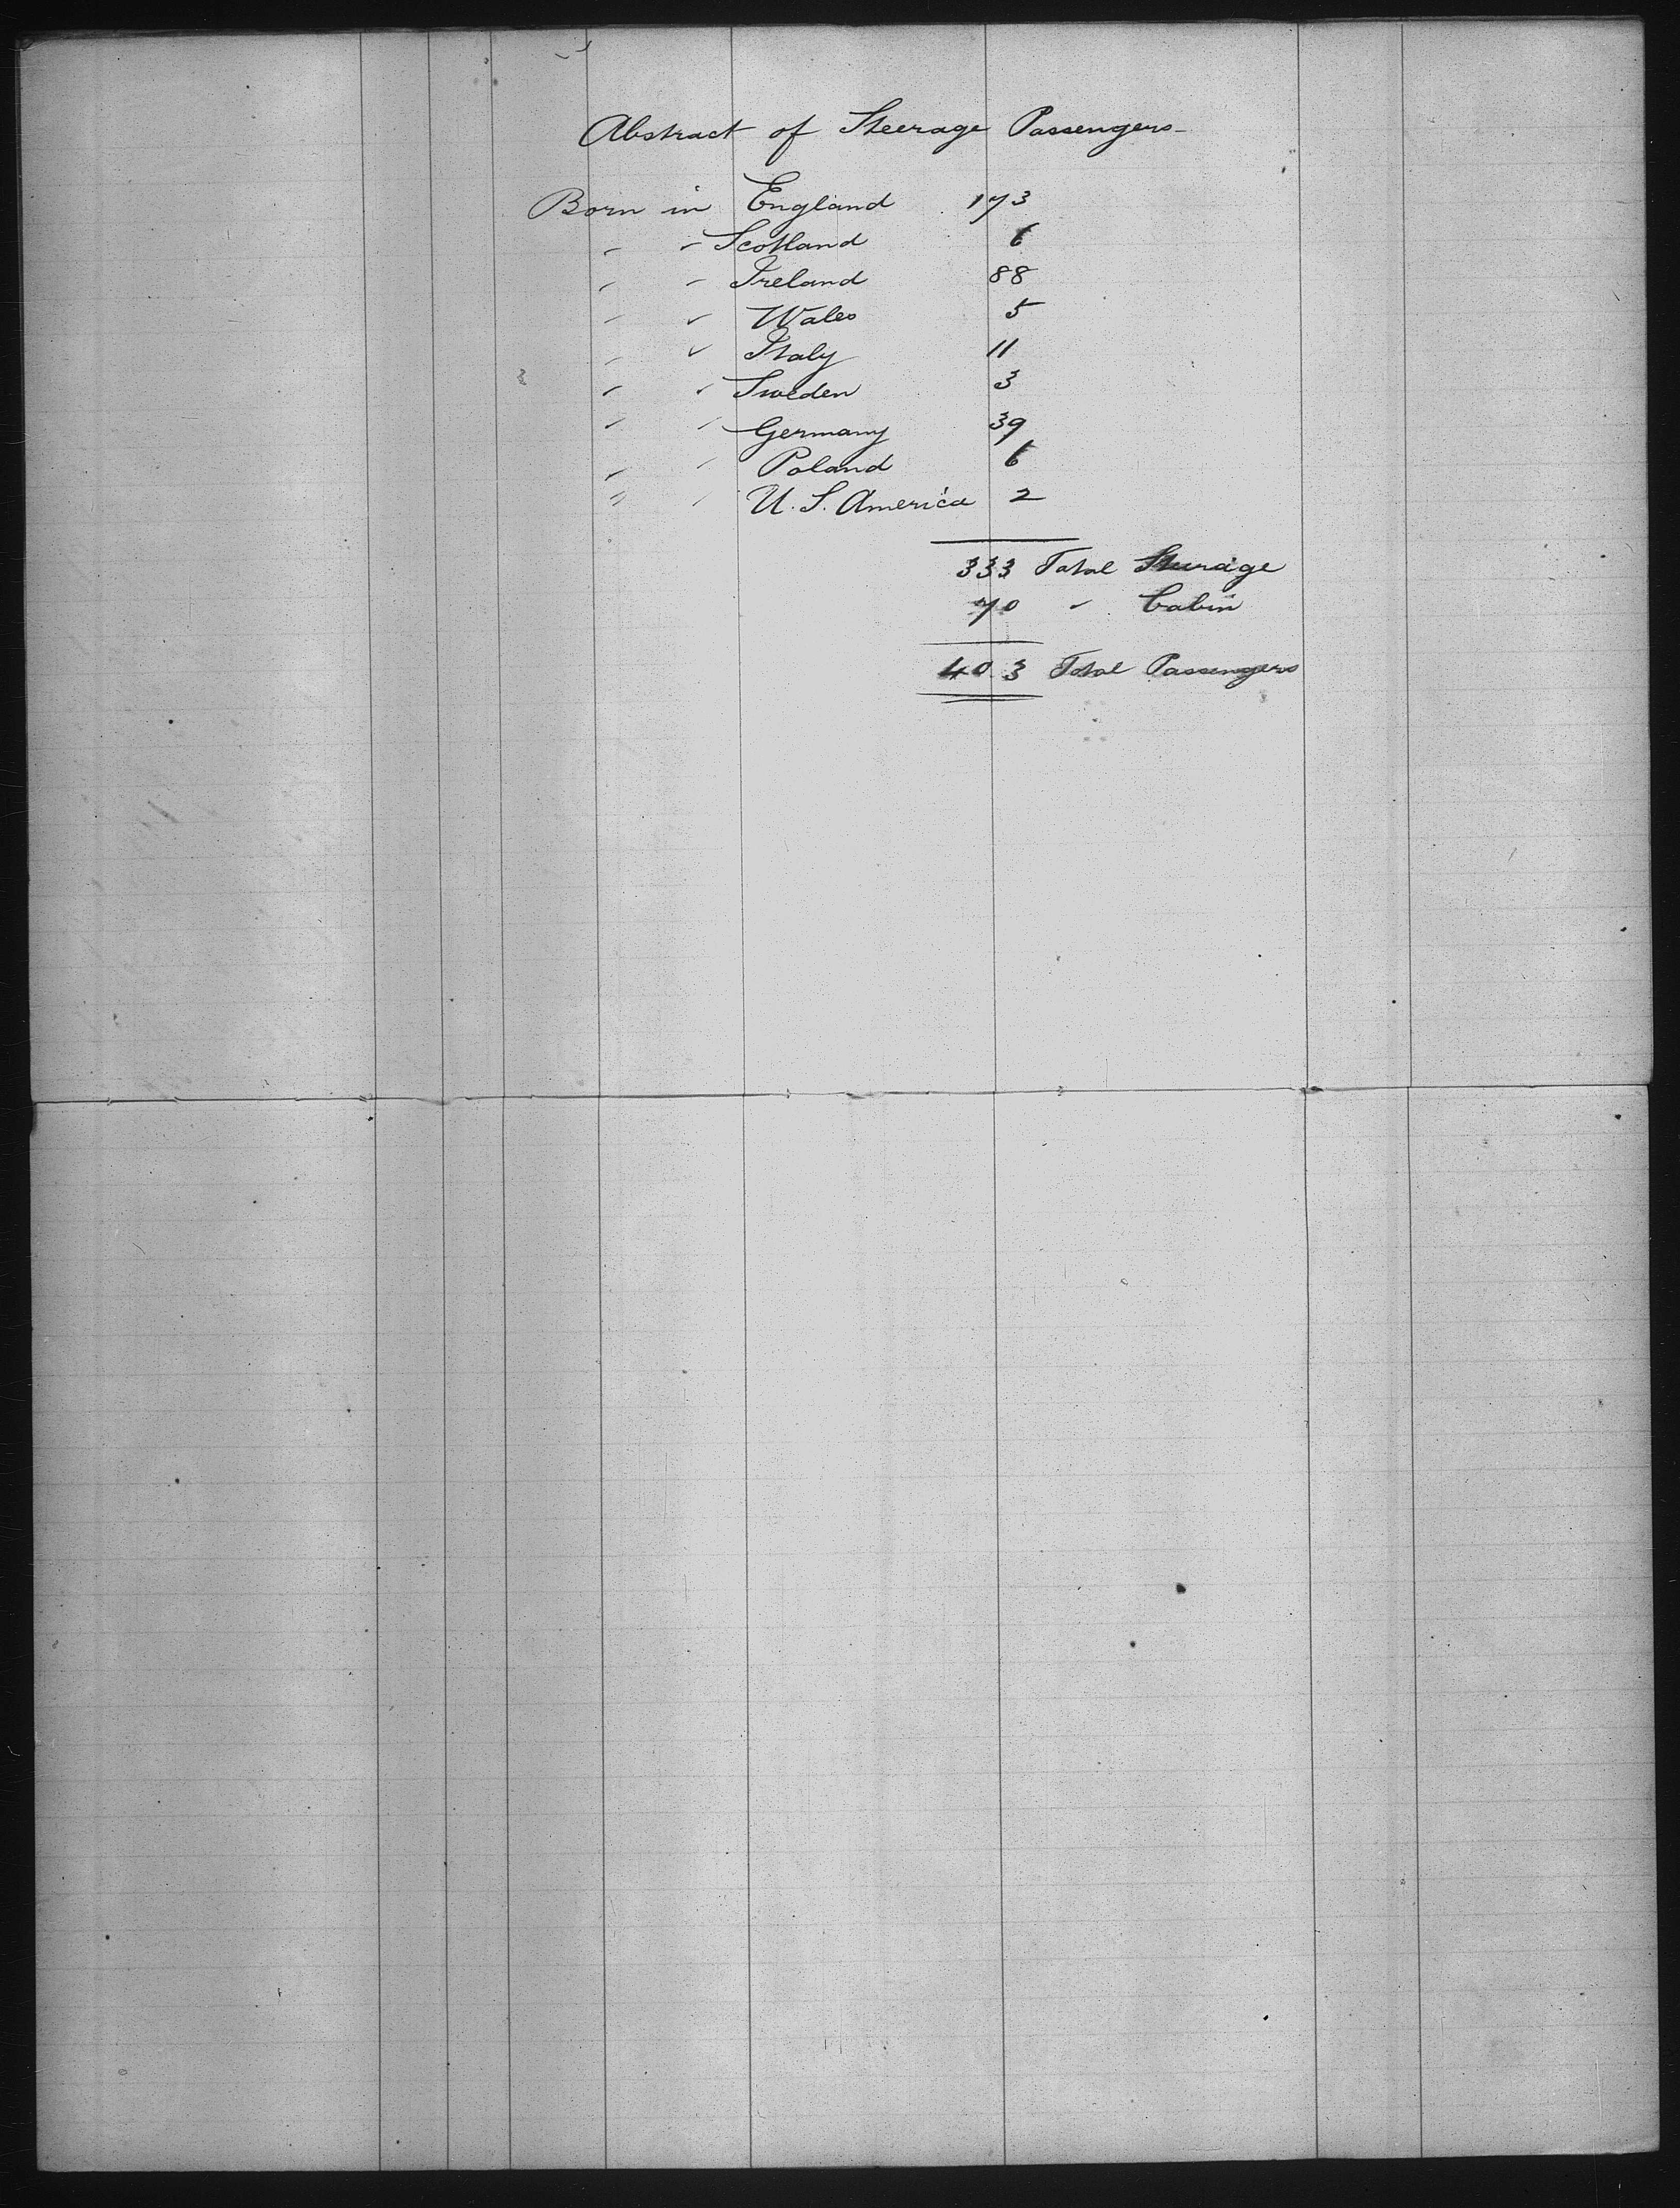 Abstract of Steerage Passengers
Born in England 173
" " Scotland 6
" " Ireland 88
" " Wales 5
" " Italy 11
" " Sweden 3
" " Germany 39
" " Poland 6
" " U. S. America 2
333 Total Steerage
70 " Cabin
403 Total Passengers